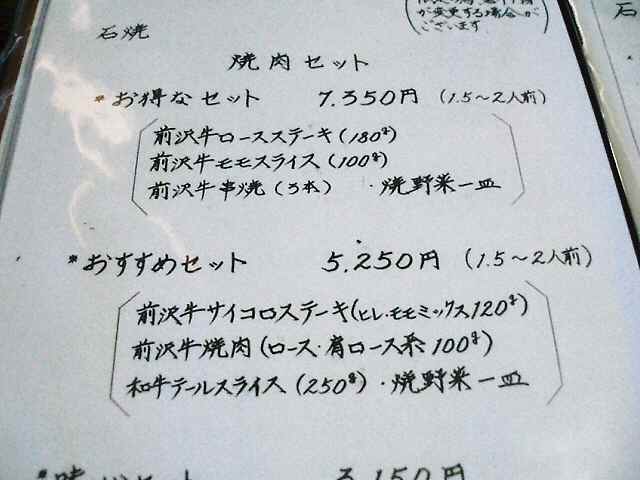 が変更する場合が
ございます
石焼
石
焼肉セット
*お得なセット 7.350円 (1.5〜2人前)
前沢牛ロースステーキ(180g)
前沢牛モモスライス(100g)
前沢牛串焼(3本)・焼野菜一皿
*おすすめセット 5.250円 (1.5〜2人前)
前沢牛サイコロステーキ(ヒレ・モモミックス120g)
前沢牛焼肉(ロース・肩ロース系100g)
和牛テールスライス(250g)・焼野菜一皿
セット 3.150円